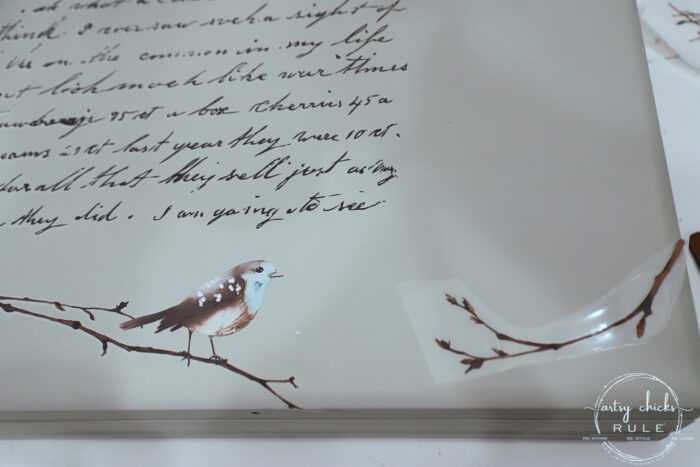 oh what a
think. I never saw such a sight of
on the common in my life
look much like war times
95 ct a box cherries 45 a
29 ct last year they were 10 ct.
for all that they sell just as many
they did. I am going to see
artsy chicks
RULE
RE.STORE RE.STYLE RE.LOVE